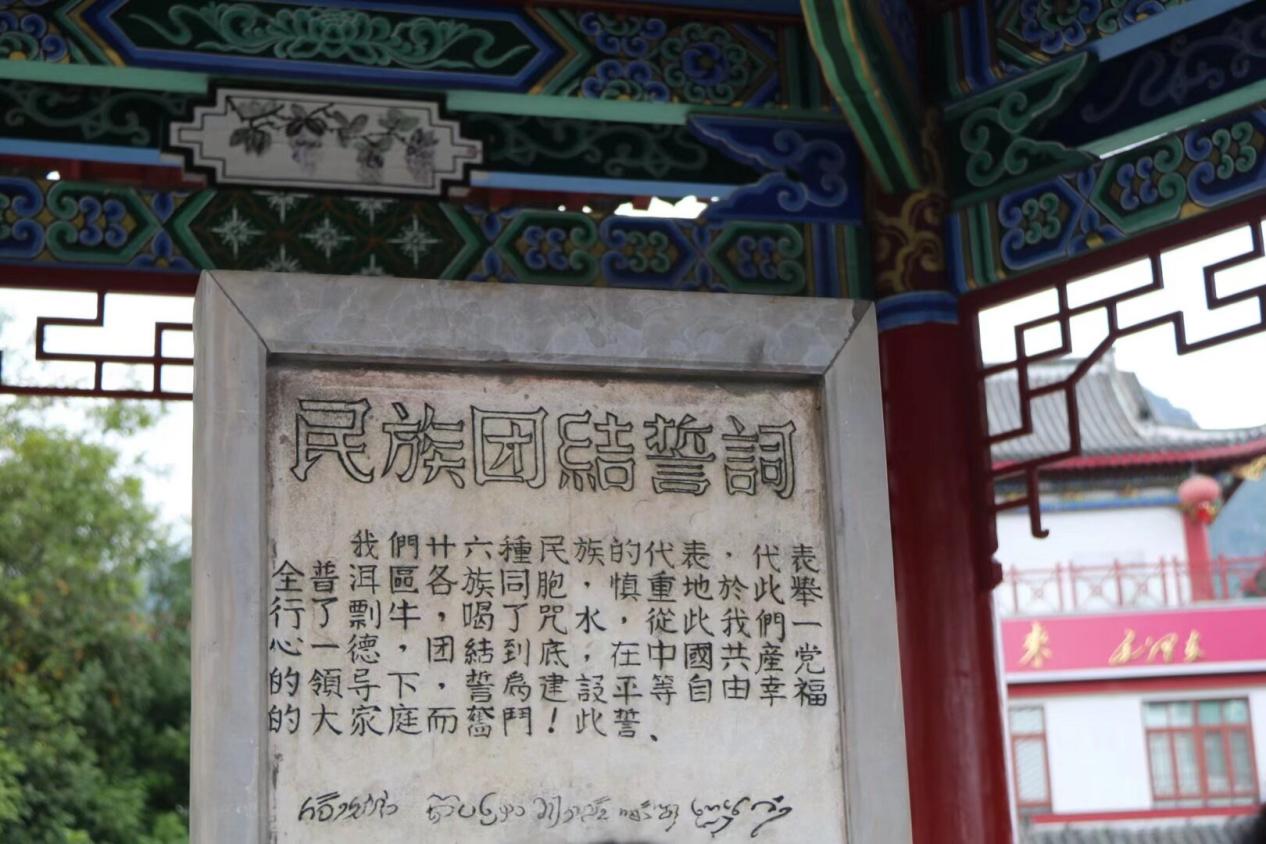 民族团結誓詞
我們廿六種民族的代表，代表
全普洱區各族同胞，慎重地於此舉
行了剽牛，喝了咒水，從此我們一
心一德，团結到底，在中國共産党
的領导下，誓為建設平等自由幸福
的大家庭而奮鬥！此誓、